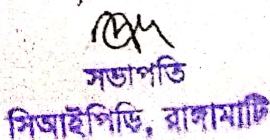 সভাপতি
সিআইপিডি, রাঙ্গামাটি